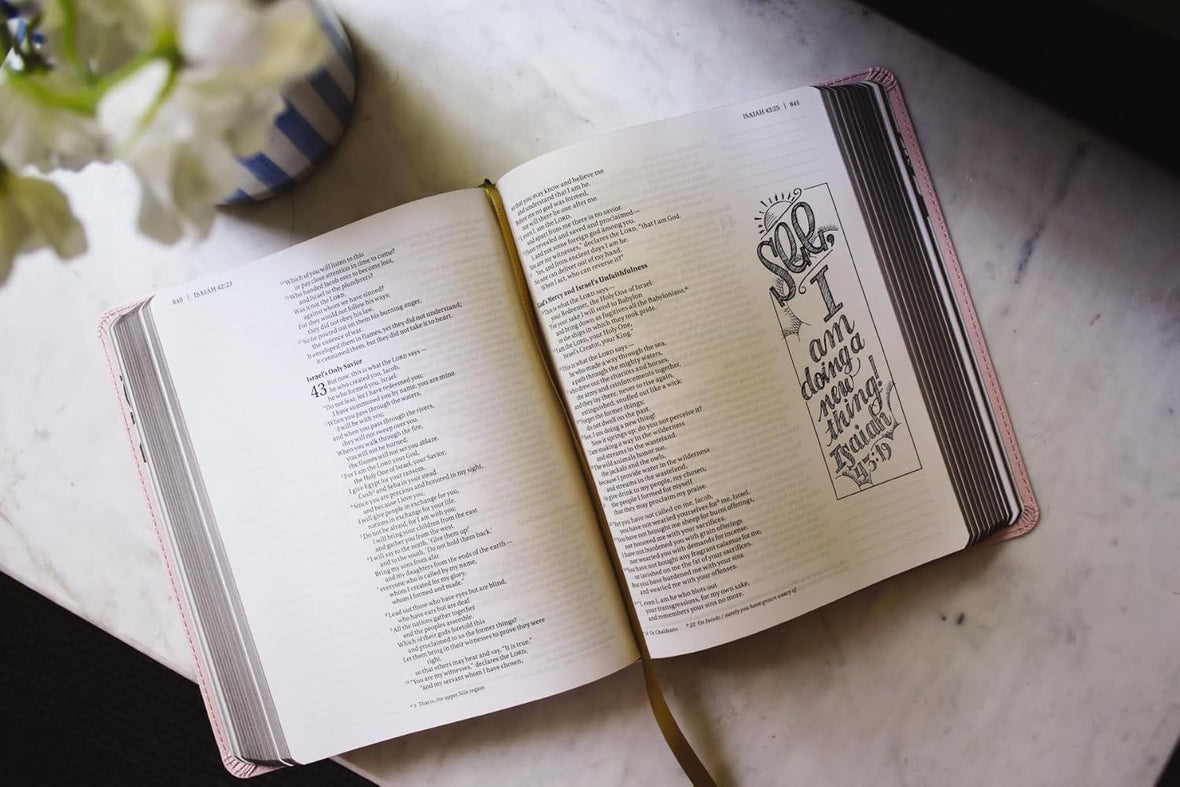 840 | ISAIAH 42:23
²³Which of you will listen to this
or pay close attention in time to come?
²⁴Who handed Jacob over to become loot,
and Israel to the plunderers?
Was it not the LORD,
against whom we have sinned?
For they would not follow his ways;
they did not obey his law.
²⁵So he poured out on them his burning anger,
the violence of war.
It enveloped them in flames, yet they did not understand;
it consumed them, but they did not take it to heart.
Israel's Only Savior
43 But now, this is what the LORD says—
he who created you, Jacob,
he who formed you, Israel:
"Do not fear, for I have redeemed you;
I have summoned you by name; you are mine.
²When you pass through the waters,
I will be with you;
and when you pass through the rivers,
they will not sweep over you.
When you walk through the fire,
you will not be burned;
the flames will not set you ablaze.
³For I am the LORD your God,
the Holy One of Israel, your Savior;
I give Egypt for your ransom,
Cushᵃ and Seba in your stead.
⁴Since you are precious and honored in my sight,
and because I love you,
I will give people in exchange for you,
nations in exchange for your life.
⁵Do not be afraid, for I am with you;
I will bring your children from the east
and gather you from the west.
⁶I will say to the north, 'Give them up!'
and to the south, 'Do not hold them back.'
Bring my sons from afar
and my daughters from the ends of the earth—
⁷everyone who is called by my name,
whom I created for my glory,
whom I formed and made."
⁸Lead out those who have eyes but are blind,
who have ears but are deaf.
⁹All the nations gather together
and the peoples assemble.
Which of their gods foretold this
and proclaimed to us the former things?
Let them bring in their witnesses to prove they were
right,
so that others may hear and say, "It is true."
¹⁰"You are my witnesses," declares the LORD,
"and my servant whom I have chosen,
ᵃ 3 That is, the upper Nile region
ISAIAH 43:25 | 841
so that you may know and believe me
and understand that I am he.
Before me no god was formed,
nor will there be one after me.
¹¹I, even I, am the LORD,
and apart from me there is no savior.
¹²I have revealed and saved and proclaimed—
I, and not some foreign god among you.
You are my witnesses," declares the LORD, "that I am God.
¹³Yes, and from ancient days I am he.
No one can deliver out of my hand.
When I act, who can reverse it?"
God's Mercy and Israel's Unfaithfulness
¹⁴This is what the LORD says—
your Redeemer, the Holy One of Israel:
"For your sake I will send to Babylon
and bring down as fugitives all the Babylonians,ᵃ
in the ships in which they took pride.
¹⁵I am the LORD, your Holy One,
Israel's Creator, your King."
¹⁶This is what the LORD says—
he who made a way through the sea,
a path through the mighty waters,
¹⁷who drew out the chariots and horses,
the army and reinforcements together,
and they lay there, never to rise again,
extinguished, snuffed out like a wick:
¹⁸"Forget the former things;
do not dwell on the past.
¹⁹See, I am doing a new thing!
Now it springs up; do you not perceive it?
I am making a way in the wilderness
and streams in the wasteland.
²⁰The wild animals honor me,
the jackals and the owls,
because I provide water in the wilderness
and streams in the wasteland,
to give drink to my people, my chosen,
²¹the people I formed for myself
that they may proclaim my praise.
²²"Yet you have not called on me, Jacob,
you have not wearied yourselves forᵇ me, Israel.
²³You have not brought me sheep for burnt offerings,
nor honored me with your sacrifices.
I have not burdened you with grain offerings
nor wearied you with demands for incense.
²⁴You have not bought any fragrant calamus for me,
or lavished on me the fat of your sacrifices.
But you have burdened me with your sins
and wearied me with your offenses.
²⁵"I, even I, am he who blots out
your transgressions, for my own sake,
and remembers your sins no more.
ᵃ 14 Or Chaldeans ᵇ 22 Or Jacob; / surely you have grown weary of
See,
I
am
doing a
new
thing!
Isaiah
43:19